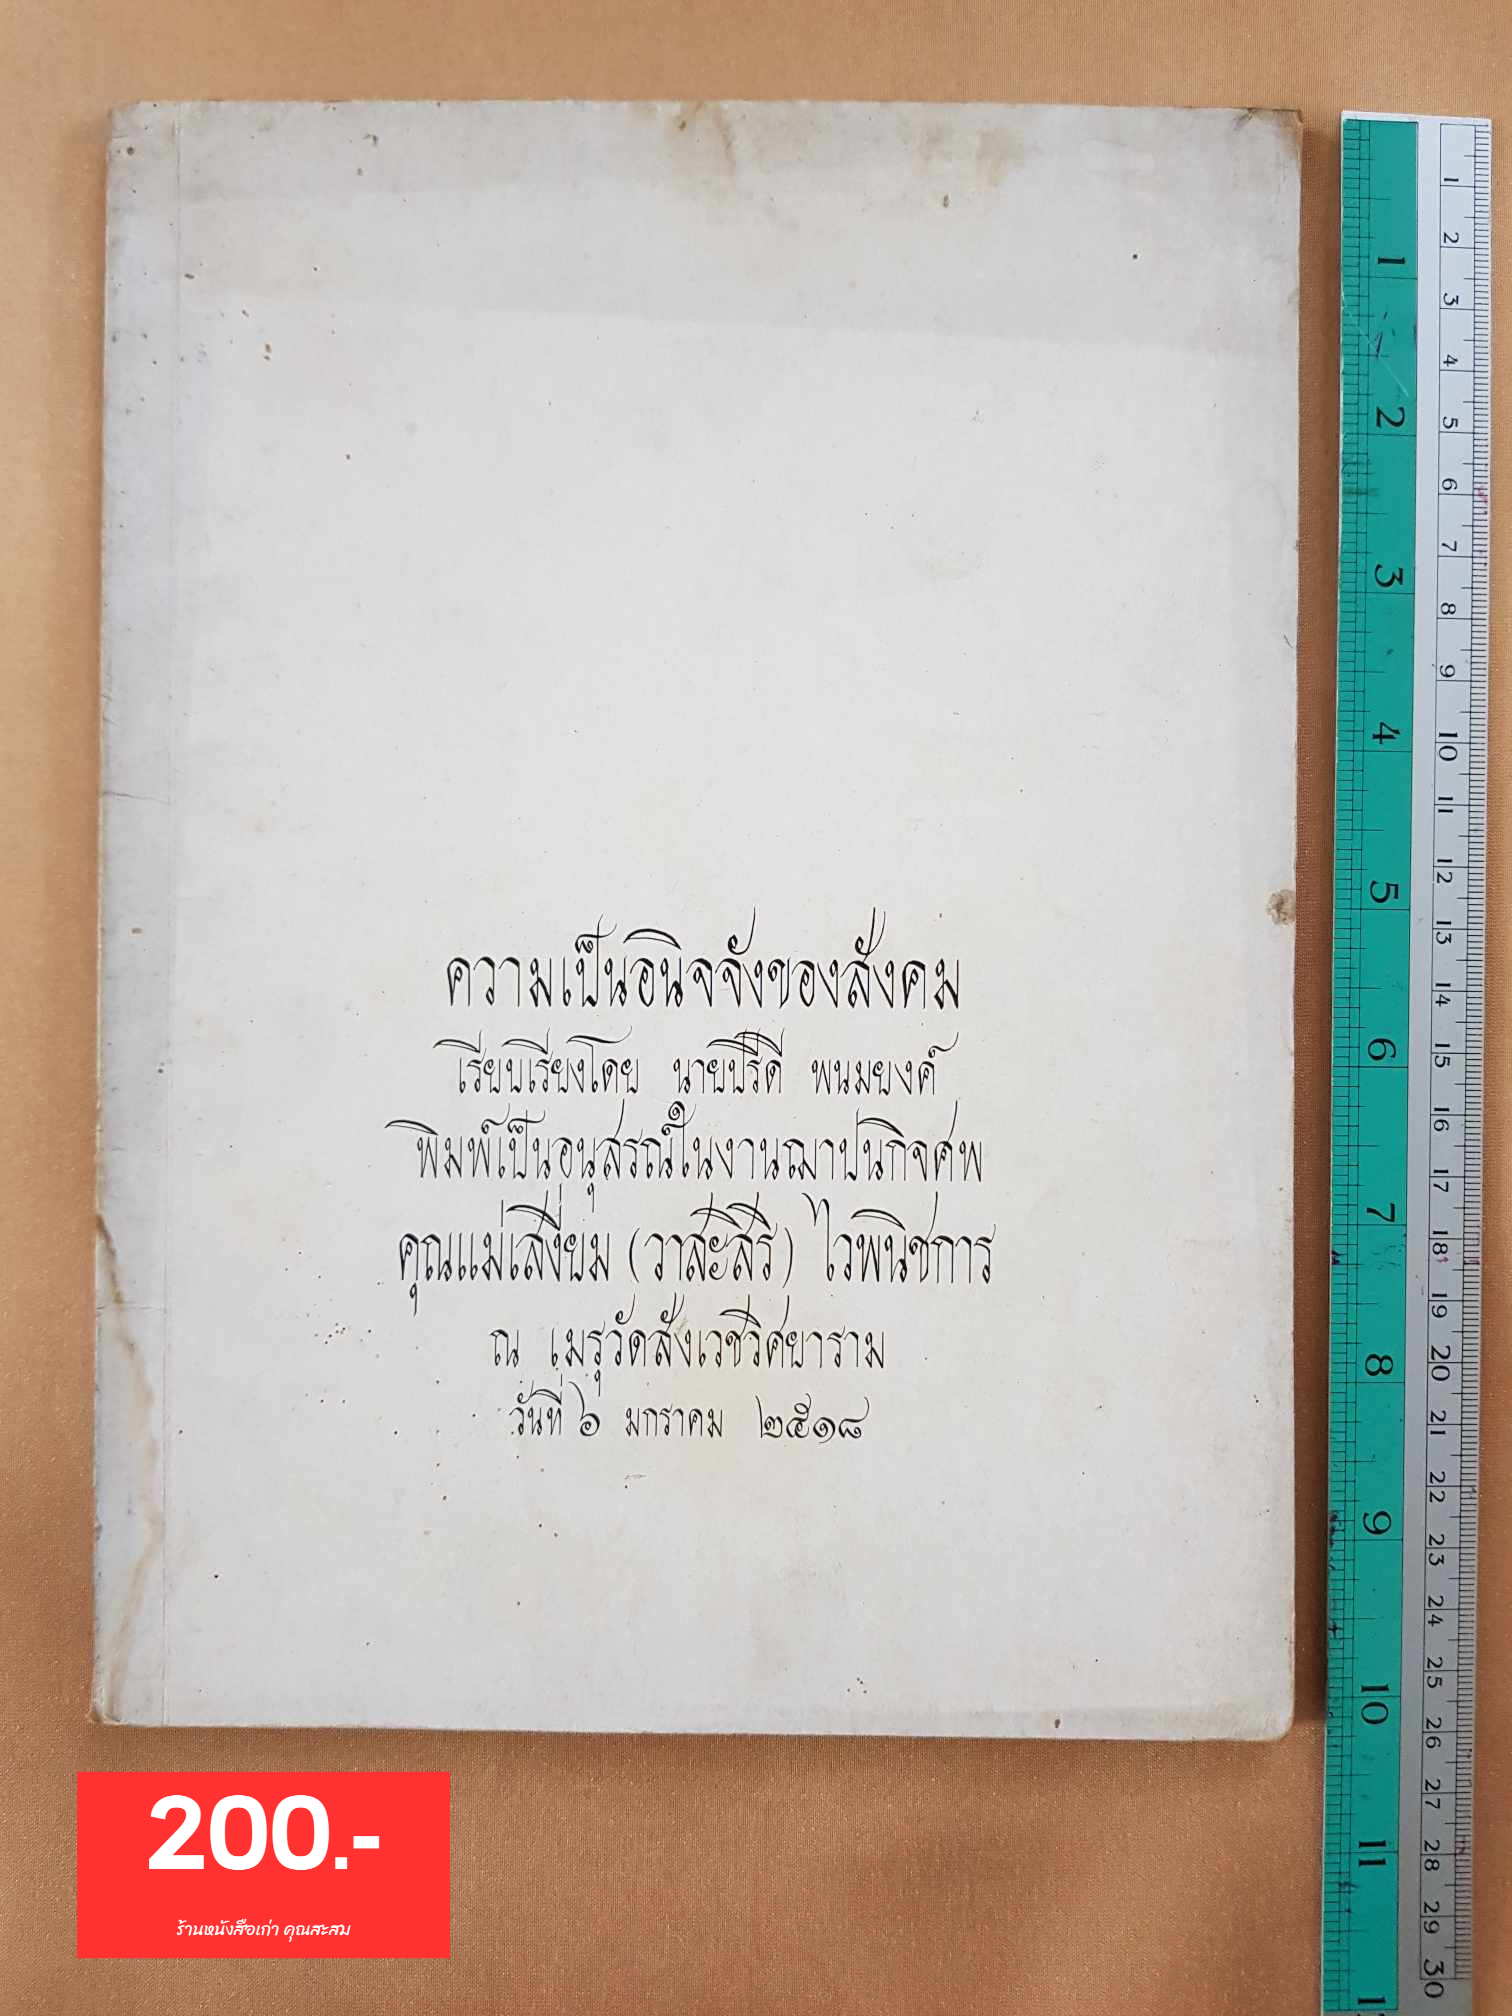 ความเป็นอนิจจังของสังคม
เรียบเรียงโดย นายปรีดี พนมยงค์
พิมพ์เป็นอนุสรณ์ในงานฌาปนกิจศพ
คุณแม่เสงี่ยม (วาสะสิริ) ไวพนิชการ
ณ เมรุวัดสังเวชวิศยาราม
วันที่ ๖ มกราคม ๒๕๑๘
1
2
3
4
5
6
7
8
9
10
11
1
2
3
4
5
6
7
8
9
10
11
12
13
14
15
16
17
18
19
20
21
22
23
24
25
26
27
28
29
30
200.-
ร้านหนังสือเก่า คุณสะสม